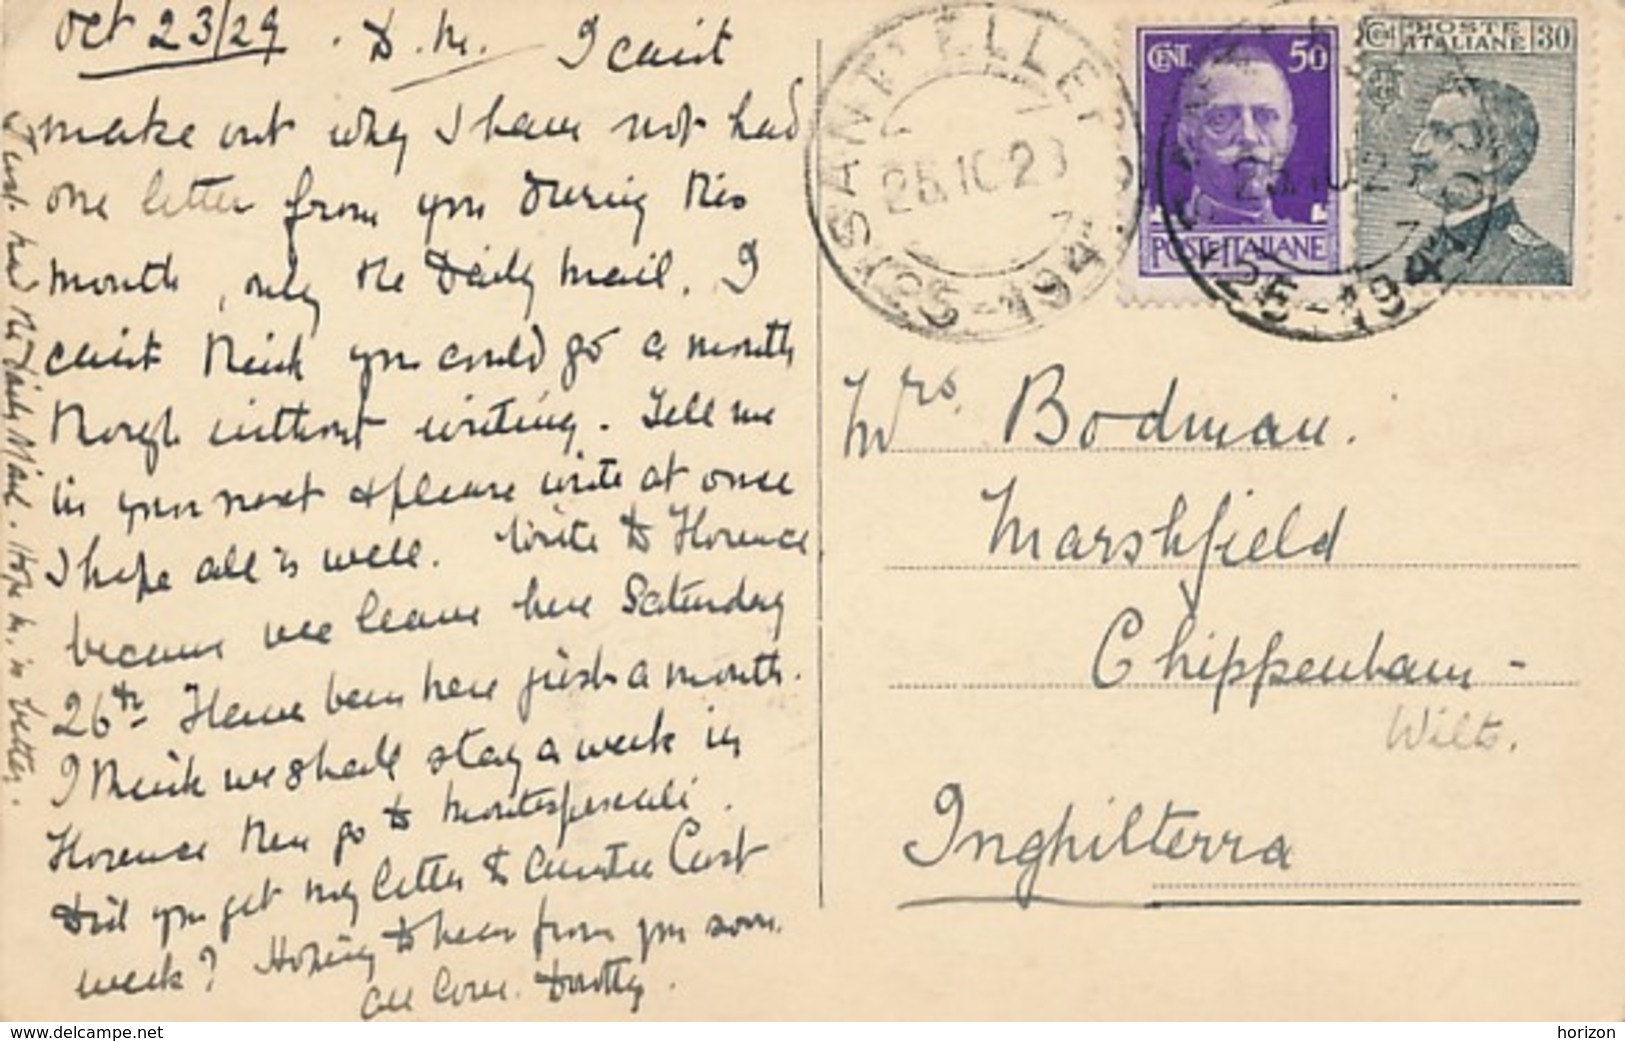 Oct 23/29 . D. M. I can't
make out why I have not had
one letter from you during this
month, only the Daily Mail. I
can't think you could go a month
though without writing. Tell me
in your next & please write at once
I hope all is well. Write to Florence
because we leave here Saturday
26th. Have been here just a month.
I think we shall stay a week in
Florence then go to
Did you get my letter to Auntie last
week? Hoping to hear from you soon.
all love. Dorothy.
Just had the Daily Mail. Hope M. is better.
SANT'ELLERO
25.10.29
CENT. 50
POSTE ITALIANE
Cent POSTE ITALIANE 30
Mrs. Bodman.
Marshfield
Chippenham -
Wilts.
Inghilterra
www.delcampe.net
horizon